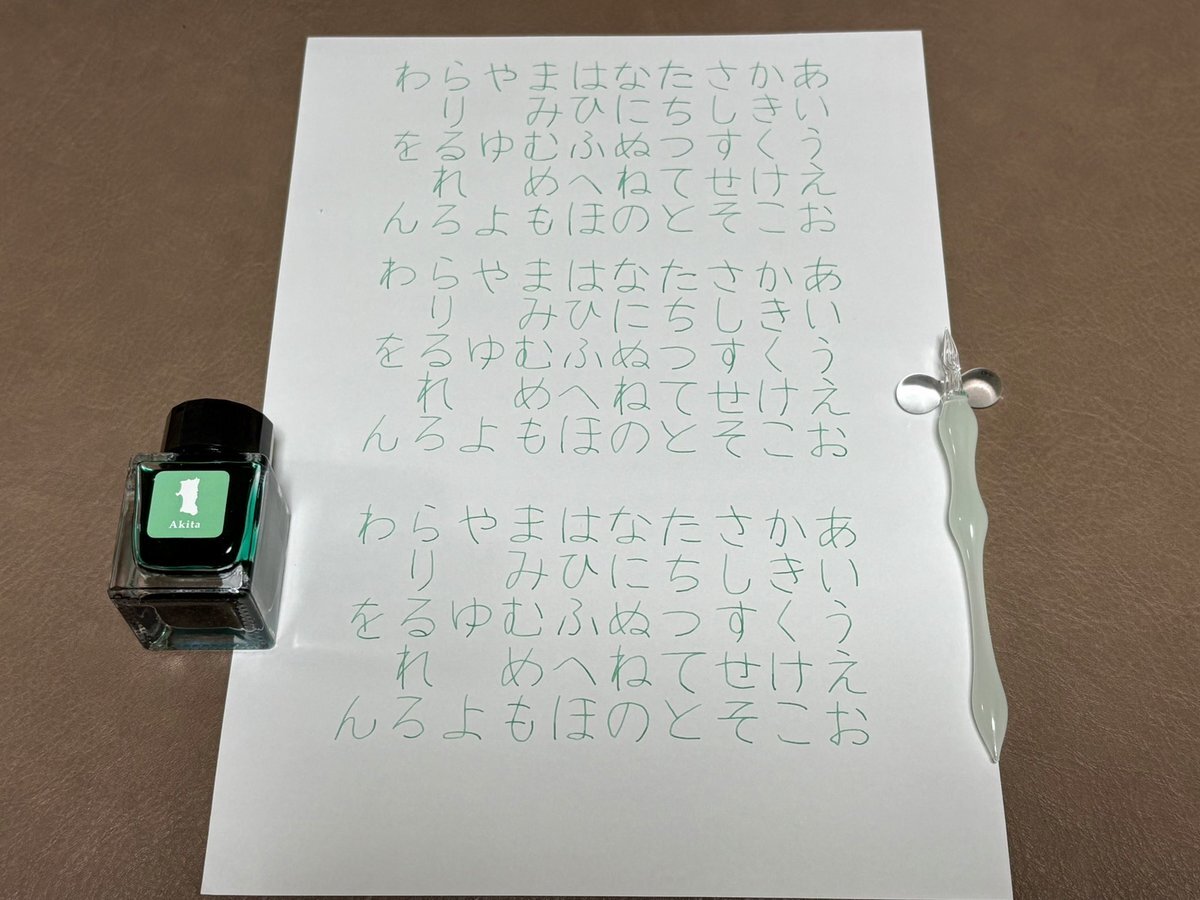 あいうえお
かきくけこ
さしすせそ
たちつてと
なにぬねの
はひふへほ
まみむめも
やゆよ
らりるれろ
わをん
あいうえお
かきくけこ
さしすせそ
たちつてと
なにぬねの
はひふへほ
まみむめも
やゆよ
らりるれろ
わをん
あいうえお
かきくけこ
さしすせそ
たちつてと
なにぬねの
はひふへほ
まみむめも
やゆよ
らりるれろ
わをん
Akita